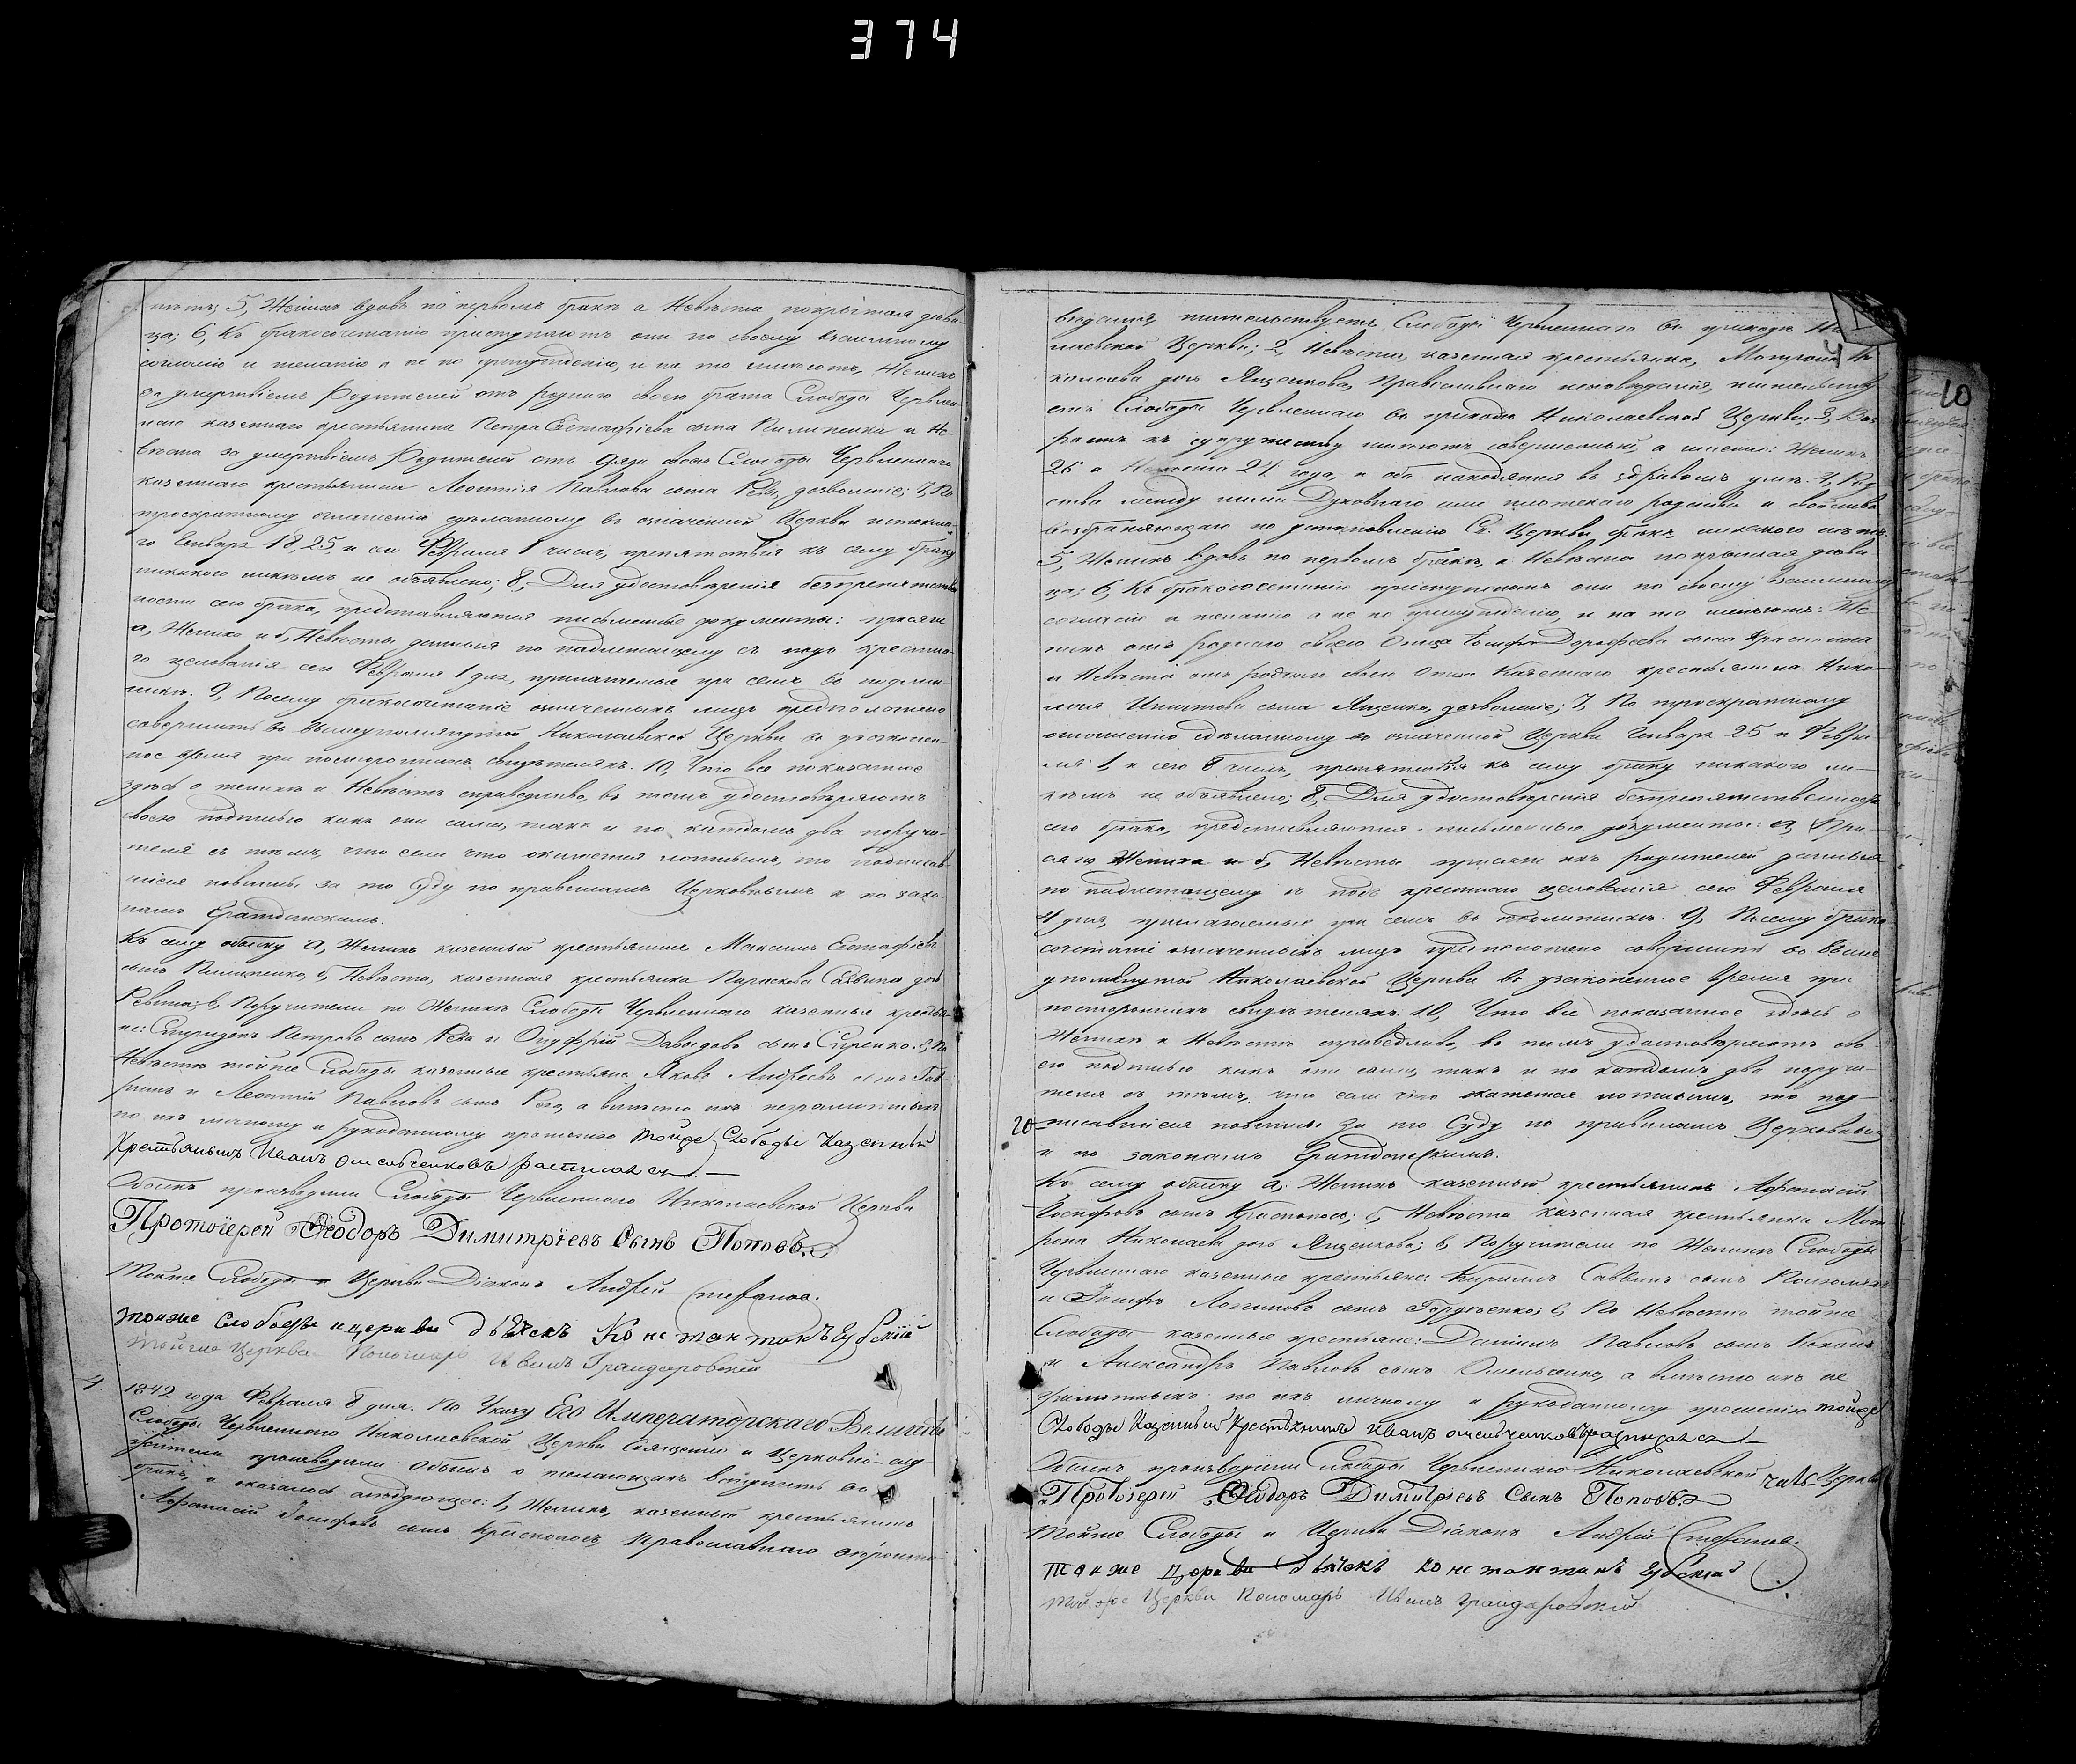 374
нѣтъ; 5, Женихъ вдовъ по первомъ бракѣ а Невѣста покрытая дѣви-
ца; 6, Къ бракосочетанію приступаютъ они по своему взаимному
согласію и желанію а не по принужденію, и на то имѣютъ, Женихъ
за умертвіемъ Родителей отъ роднаго своего брата Слободы Червлен-
наго казеннаго крестьянина Петра Евстафіева сына Пилипенка и Не-
вѣста за умертвіемъ Родителей отъ дяди своего Слободы Червленнаго
казеннаго крестьянина Леонтія Павлова сына Рева, дозволеніе; 7, По
троекратному оглашенію сдѣланному въ означенной Церкви
го Генваря 18, 25, и сего Февраля 1 числъ, препятствія къ сему браку
никакого никѣмъ не объявлено; 8, Для удостовѣренія безпрепятствен-
ности сего брака, представляются письменные документы: присяги
а, Жениха и б, Невѣсты данныя по надлежащему съ подъ крестна-
го целованія сего Февраля 1 дня, прилагаемые при семъ въ подлин-
никѣ. 9, Посему бракосочетаніе означенныхъ лицъ предположено
совершить въ вышеупомянутой Николаевской Церкви въ узаконен-
ное время при постороннихъ свидѣтеляхъ. 10, Что все показанное
здѣсь о женихѣ и Невѣстѣ справедливо, въ томъ удостовѣряютъ
своею подписью какъ они сами, такъ и по каждомъ два поручи-
теля съ тѣмъ, что если что окажется ложнымъ, то подписав-
шіеся повинны за то Суду по правиламъ Церковнымъ и по зако-
намъ Гражданскимъ.
Къ сему обыску а, Женихъ казенный крестьянинъ Максимъ Евстафіевъ
сынъ Пилипенко, б, Невѣста, казенная крестьянка Параскева Саввина дочь
Ревина; в, Поручители по Женихѣ Слободы Червленнаго казенные крестья-
не: Спиридонъ Петровъ сынъ Рева и Онуфрій Давыдовъ сынъ Сиренко. г, По
Невѣстѣ тойже Слободы казенные крестьяне: Яковъ Андреевъ сынъ Гав-
и Леонтій Павловъ сынъ Рева, а вмѣсто ихъ неграмотныхъ
по ихъ личному и рукоданному прошенію тойже Слободы Казенный
Крестьянинъ Иванъ Омельченковъ расписался
Обыскъ производили Слободы Червленнаго Николаевской Церкви
Протоіерей Ѳеодоръ Димитріевъ Сынъ Поповъ
Тойже Слободы и Церкви Діаконъ Андрей Стефановъ.
тойже слободы и церкви дьячекъ Констактинъ
тойже Церкви Пономарь Иванъ
4. 1842 года Февраля 8 дня. По Указу Его Императорскаго Величества
Слободы Червленнаго Николаевской Церкви Священно и Церковно-слу-
жители производили Обыскъ о желающихъ вступить въ
бракъ, и оказалось слѣдующее: 1, Женихъ, казенный крестьянинъ
Афанасій Іосифовъ сынъ Красноносъ, Православнаго
10
жительствуетъ Слободы Червленнаго въ приходѣ Ни-
лаевской Церкви; 2, Невѣста, казенная крестьянка, Ни-
колаева дочь Ященкова, Православнаго исповѣданія, жительству-
етъ Слободы Червленнаго въ приходѣ Николаевской Церкви; 3, Воз-
растъ къ супружеству имѣютъ совершенный, а именно: Женихъ
26 а Невѣста 21 года, и оба находятся въ здравомъ умѣ. 4, Род-
ства между ними Духовнаго или плотскаго родства и свойства
возбраняющаго по установленію Св. Церкви бракъ никакого нѣтъ.
5, Женихъ вдовъ по первомъ бракѣ, а Невѣста покрытая дѣви-
ца; 6, Къ бракосочетанію приступаютъ они по своему взаимному
согласію и желанію а не по принужденію, и на то имѣютъ: Же-
нихъ отъ роднаго своего Отца Іосифа Дорофѣева сына Красноноса
и Невѣста отъ роднаго своего Отца Казеннаго крестьянина Нико-
лая Игнатова сына Ященка, дозволеніе; 7, По троекратному
оглашенію сдѣланному въ означенной Церкви Генваря 25 и Февра-
ля 1, и сего 8 числъ, препятствія къ сему браку никакого ни-
кѣмъ не объявлено; 8, Для удостовѣренія безпрепятственности
сего брака, представляются письменные документы: а, При-
сяга Жениха и б, Невѣсты присяги ихъ родителей данныя
по надлежащему съ подъ крестнаго целованія сего Февраля
4 дня, прилагаемые при семъ въ подлинникѣ. 9, Посему брако-
сочетаніе означенныхъ лицъ предположено совершить въ выше-
упомянутой Николаевской Церкви въ узаконенное время при
постороннихъ свидѣтеляхъ. 10, Что все показанное здѣсь о
Женихѣ и Невѣстѣ справедливо, въ томъ удостовѣряютъ сво-
ею подписью какъ они сами, такъ и по каждомъ два поручи-
теля съ тѣмъ, что если что окажется ложнымъ, то под-
писавшіеся повинны за то Суду по правиламъ Церковнымъ
и по законамъ Гражданскимъ.
Къ сему обыску а, Женихъ казенный крестьянинъ Афанасій
Іосифовъ сынъ Красноносъ; б, Невѣста казенная крестьянка Мот-
рона Николаева дочь Ященкова; в, Поручители по Женихѣ Слободы
Червленнаго казенные крестьяне: Кирилъ Саввинъ сынъ
и Іосифъ Логиновъ сынъ Гордіенко; г, По Невѣстѣ тойже
Слободы казенные крестьяне: Даніилъ Павловъ сынъ
и Александръ Павловъ сынъ Омельченко, а вмѣсто ихъ не
грамотныхъ по ихъ личному и рукоданному прошенію тойже
Слободы Казенный Крестьянинъ Иванъ Омельченковъ расписался
Обыскъ производили Слободы Червленнаго Николаевской Церкви
Протоіерей Ѳеодоръ Димитріевъ Сынъ Поповъ
Тойже Слободы и Церкви Діаконъ Андрей Стефановъ.
тойже церкви дьячекъ Констактинъ
тойже Церкви Пономарь Иванъ